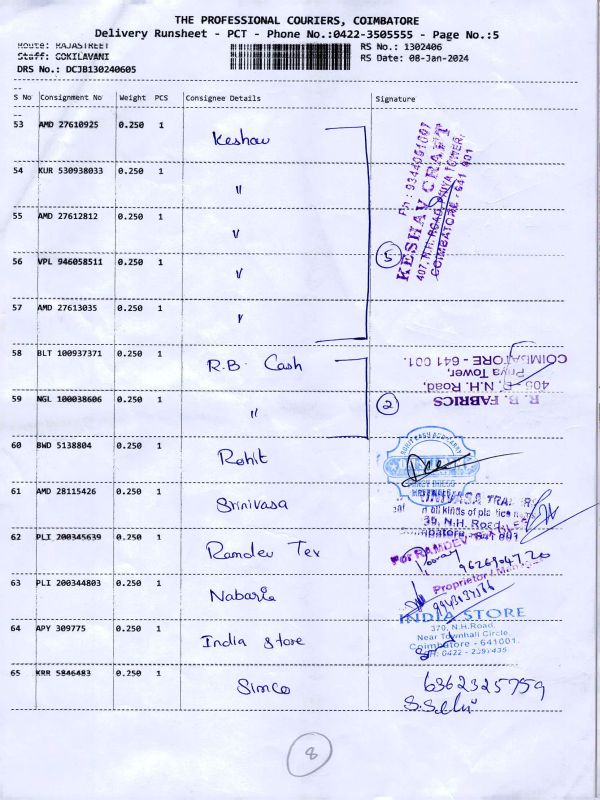 THE PROFESSIONAL COURIERS, COIMBATORE
Delivery Runsheet - PCT - Phone No.:0422-3505555 - Page No.:5
Route: RAJASTREET
RS No.: 1302406
Staff: GOKILAVANI
RS Date: 08-Jan-2024
DRS No.: DCJB130240605
S No Consignment No Weight PCS Consignee Details Signature
53 AMD 27610925 0.250 1 Keshav
54 KUR 530938033 0.250 1 "
55 AMD 27612812 0.250 1 "
56 VPL 946058511 0.250 1 "
57 AMD 27613035 0.250 1 "
5
Ph : 9344091007
KESHAV CRAFT
407, N.H. ROAD, PRIYA TOWER,
COIMBATORE - 641 001
58 BLT 100937371 0.250 1 R.B. Cash
59 NGL 100038606 0.250 1 "
2
R. B. FABRICS
405, D, N.H. Road,
Priya Tower,
COIMBATORE - 641 001.
60 BWD 5138804 0.250 1 Rohit
61 AMD 28115426 0.250 1 Srinivasa
all kinds of
39, N.H. Road
62 PLI 200345639 0.250 1 Ramdev Tex
For RAMDEV
Proprietor / Manager
63 PLI 200344803 0.250 1 Nabaria
64 APY 309775 0.250 1 India Store
INDIA STORE
370, N.H.Road,
Near Townhall Circle,
Coimbatore - 641001.
PH: 0422 - 2397435
65 KRR 5846483 0.250 1 Simco
6362325759
8